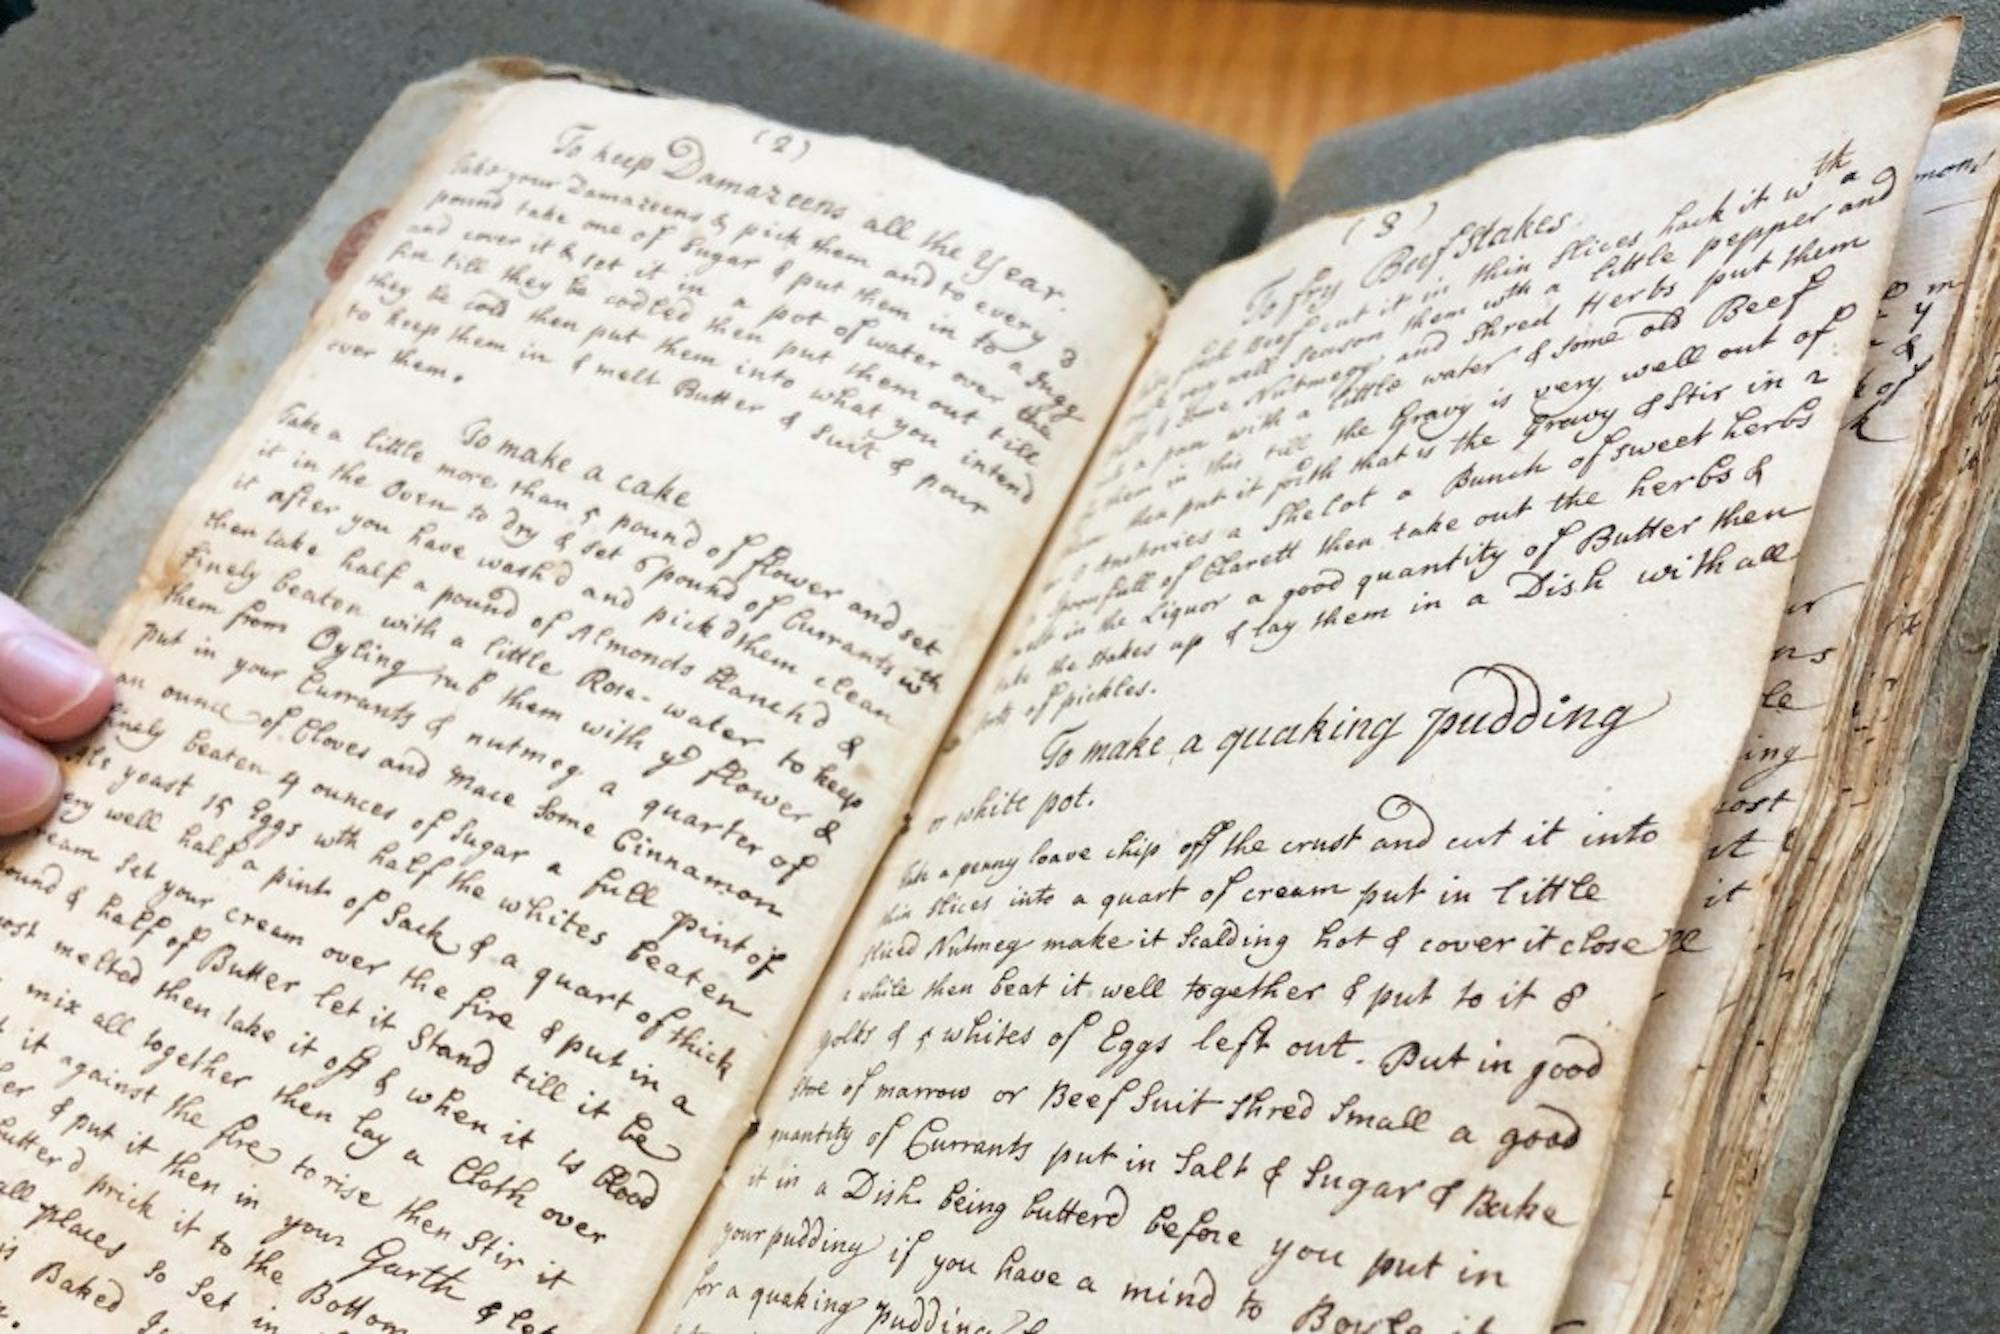 (2)
To keep Damazeens all the Year.
Take your Damazeens & pick them and to every
pound take one of Sugar & put them in to a Jugg
and cover it & set it in a pot of water over the
fire till they be codled then put them out till
they be cold then put them into what you intend
to keep them in & melt Butter & Suit & pour
over them.
To make a cake
Take a little more than 5 pound of flower and set
it in the Oven to dry & set 6 pound of Currants wth
it after you have wash'd and pick'd them clean
then take half a pound of Almonds blanch'd &
finely beaten with a little Rose-water to keep
them from Oyling rub them with ye flower &
put in your Currants & nutmeg a quarter of
an ounce of Cloves and Mace Some Cinnamon
finely beaten 4 ounces of Sugar a full pint of
Ale yeast 15 Eggs wth half the whites beaten
very well half a pint of Sack & a quart of thick
cream set your cream over the fire & put in a
pound & half of Butter let it Stand till it be
most melted then take it off & when it is blood
mix all together then lay a Cloth over
it against the fire to rise then Stir it
& put it then in your Garth & let
butter'd prick it to the Bottom
all places so set in
is Baked
(3)
To fry Beef Stakes.
Beef cut it in thin Slices hack it wth a
very well Season them with a little pepper and
& Some Nutmeg and Shred Herbs put them
a pan with a little water & some old Beef
them in this till the Gravy is very well out of
then put it forth that is the Gravy & Stir in 2
Anchovies a Shelot a Bunch of sweet herbs
Spoonfull of Clarett then take out the herbs &
melt in the Liquor a good quantity of Butter then
take the Stakes up & lay them in a Dish with all
sorts of pickles.
To make a quaking pudding
or white pot.
Take a penny loave chip off the crust and cut it into
thin Slices into a quart of cream put in little
sliced Nutmeg make it Scalding hot & cover it close
a while then beat it well together & put to it 8
yolks & 5 whites of Eggs left out. Put in good
store of marrow or Beef Suit shred Small a good
quantity of Currants put in Salt & Sugar & Bake
it in a Dish being butterd before you put in
your pudding if you have a mind to Boyle it
for a quaking pudding